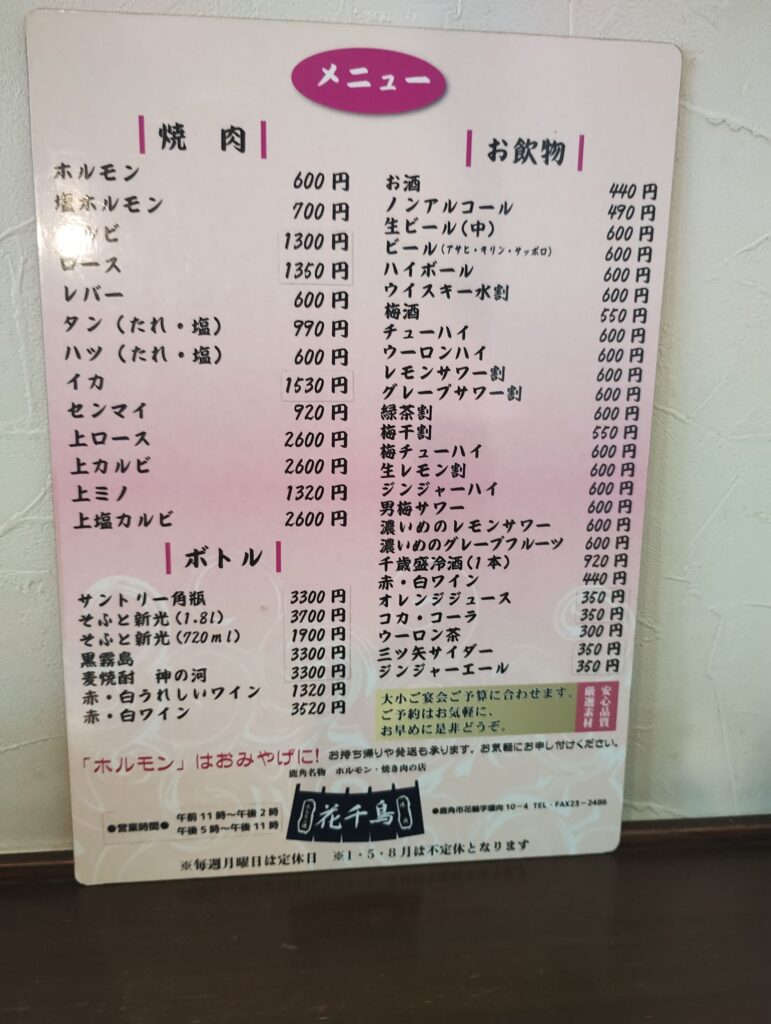 メニュー
焼 肉
ホルモン 600 円
塩ホルモン 700 円
ルビ 1300 円
ロース 1350 円
レバー 600 円
タン（たれ・塩） 990 円
ハツ（たれ・塩） 600 円
イカ 1530 円
センマイ 920 円
上ロース 2600 円
上カルビ 2600 円
上ミノ 1320 円
上塩カルビ 2600 円
ボトル
サントリー角瓶 3300 円
そふと新光(1.8l) 3700 円
そふと新光(720ml) 1900 円
黒霧島 3300 円
麦焼酎 神の河 3300 円
赤・白うれしいワイン 1320 円
赤・白ワイン 3520 円
お飲物
お酒 440 円
ノンアルコール 490 円
生ビール(中) 600 円
ビール(アサヒ・キリン・サッポロ) 600 円
ハイボール 600 円
ウイスキー水割 600 円
梅酒 550 円
チューハイ 600 円
ウーロンハイ 600 円
レモンサワー割 600 円
グレープサワー割 600 円
緑茶割 600 円
梅干割 550 円
梅チューハイ 600 円
生レモン割 600 円
ジンジャーハイ 600 円
男梅サワー 600 円
濃いめのレモンサワー 600 円
濃いめのグレープフルーツ 600 円
千歳盛冷酒(1本) 920 円
赤・白ワイン 440 円
オレンジジュース 350 円
コカ・コーラ 350 円
ウーロン茶 300 円
三ツ矢サイダー 350 円
ジンジャーエール 350 円
大小ご宴会ご予算に合わせます。
ご予約はお気軽に、
お早めに是非どうぞ。
安心品質
厳選素材
「ホルモン」はおみやげに! お持ち帰りや発送も承ります。お気軽にお申し付けください。
鹿角名物 ホルモン・焼き肉の店
花千鳥
●営業時間● 午前11時〜午後2時
午後5時〜午後11時
●鹿角市花輪字堰向10−4 TEL・FAX23−2486
※毎週月曜日は定休日 ※1・5・8月は不定休となります